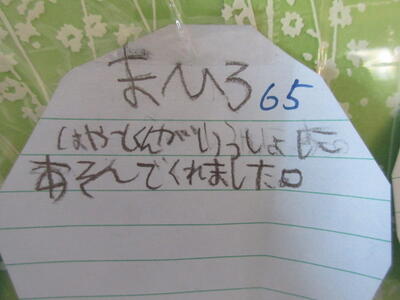 まひろ 65
はやとくんがいっしょに
あそんでくれました。